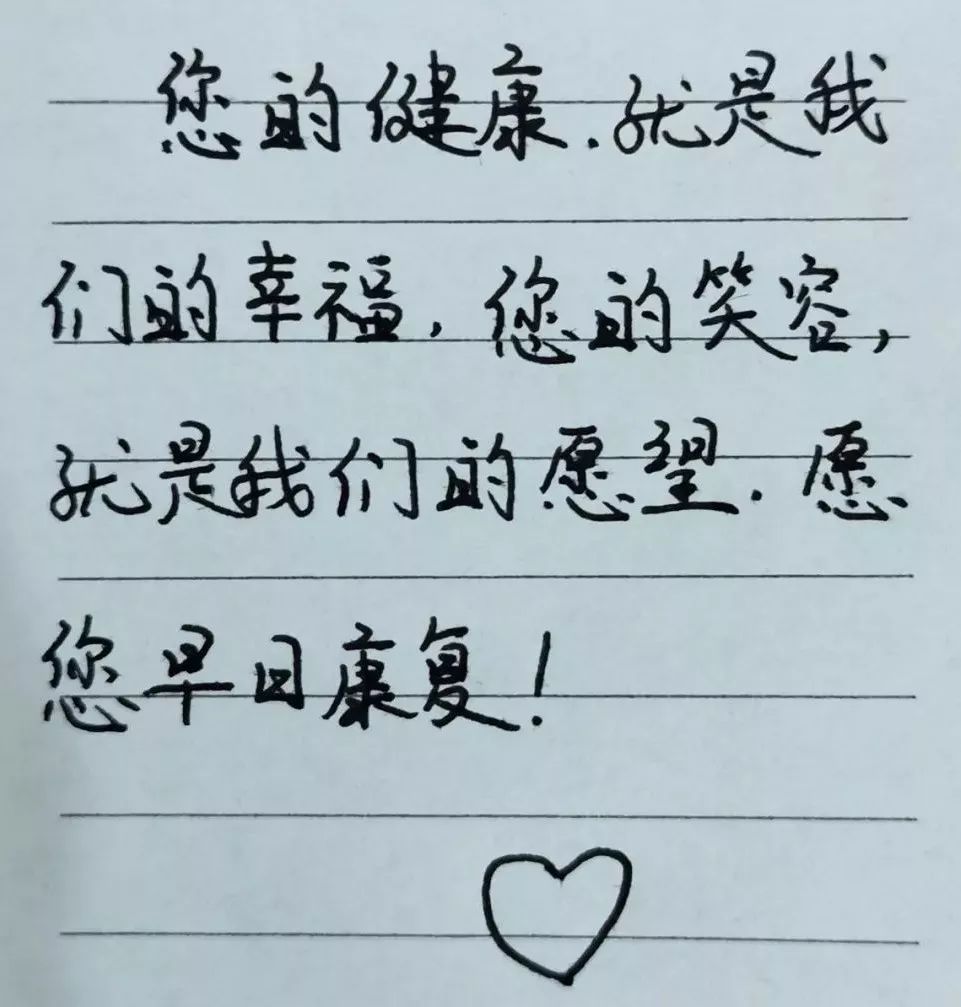 您的健康.就是我
们的幸福,您的笑容,
就是我们的愿望.愿
您早日康复!